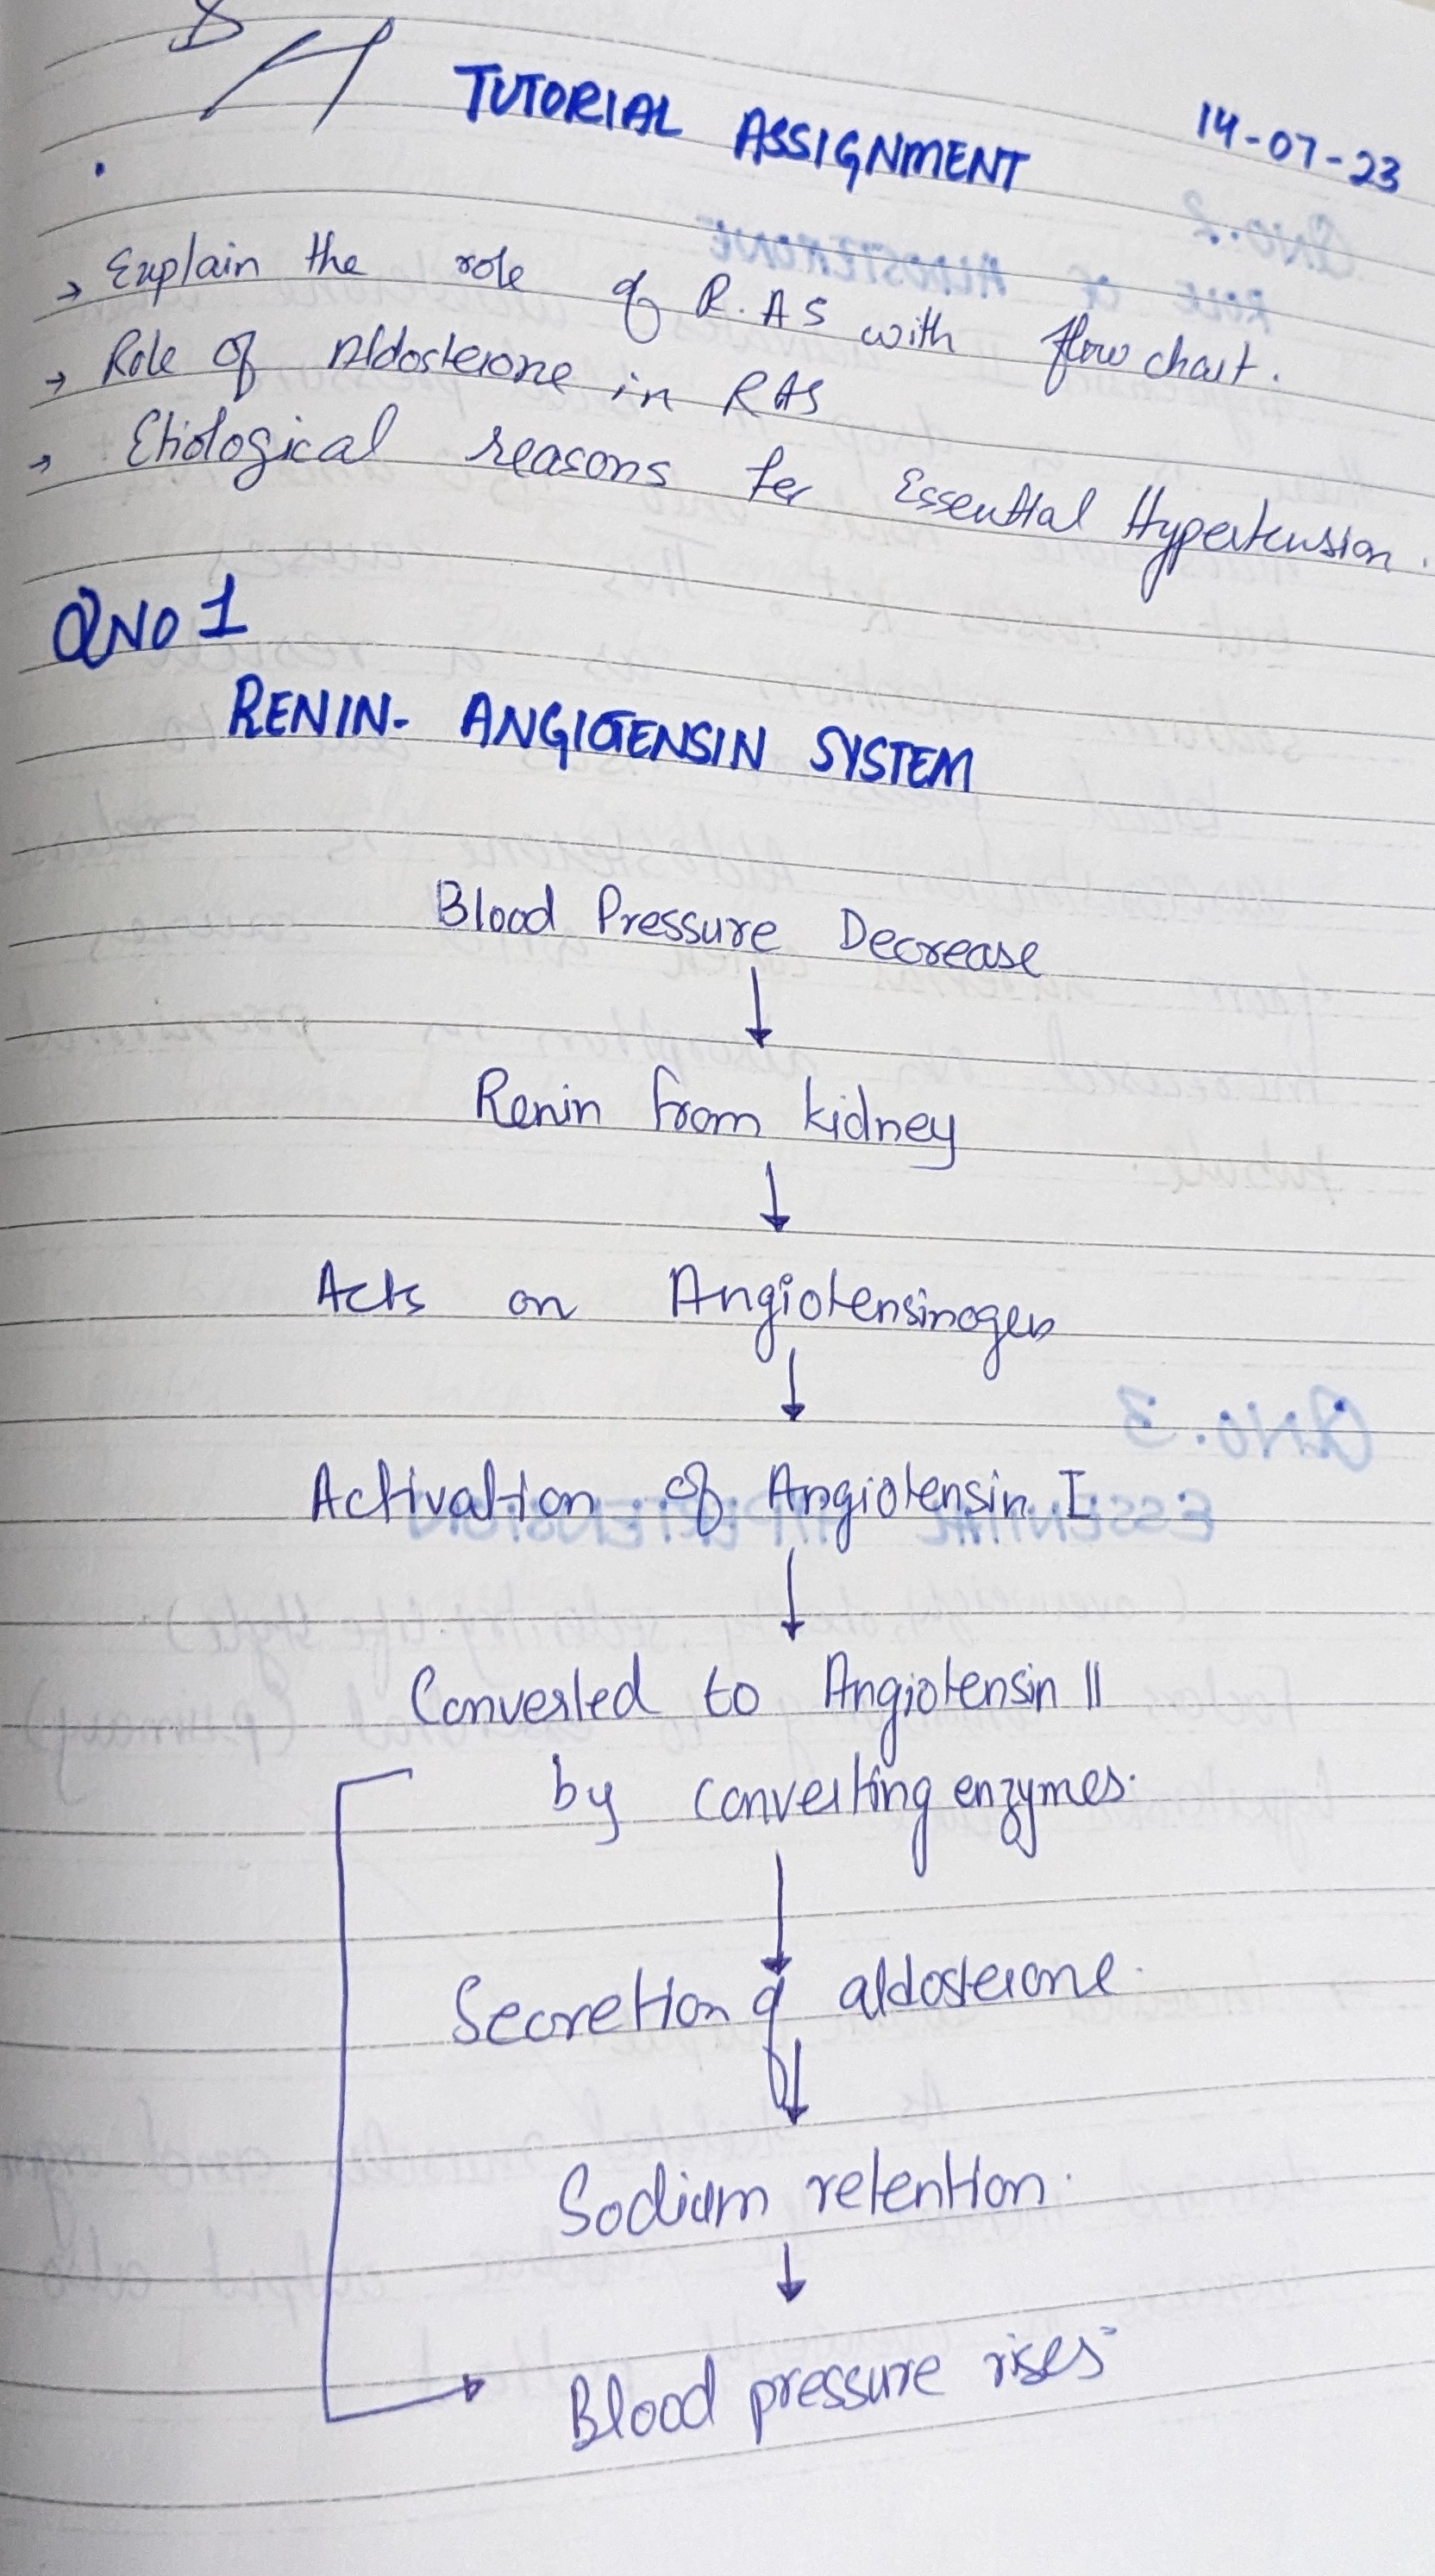 TUTORIAL ASSIGNMENT
14-07-23
→ Explain the role of R.AS with flow chart.
→ Role of Aldosterone in RAS
→ Etiological reasons for Essential Hypertension.
QNO 1
RENIN- ANGIOTENSIN SYSTEM
Blood Pressure Decrease
↓
Renin from kidney
↓
Acts on Angiotensinogen
↓
Activation of Angiotensin I
↓
Converted to Angiotensin II
by converting enzymes.
↓
Secretion of aldosterone.
↓
Sodium retention.
↓
Blood pressure rises